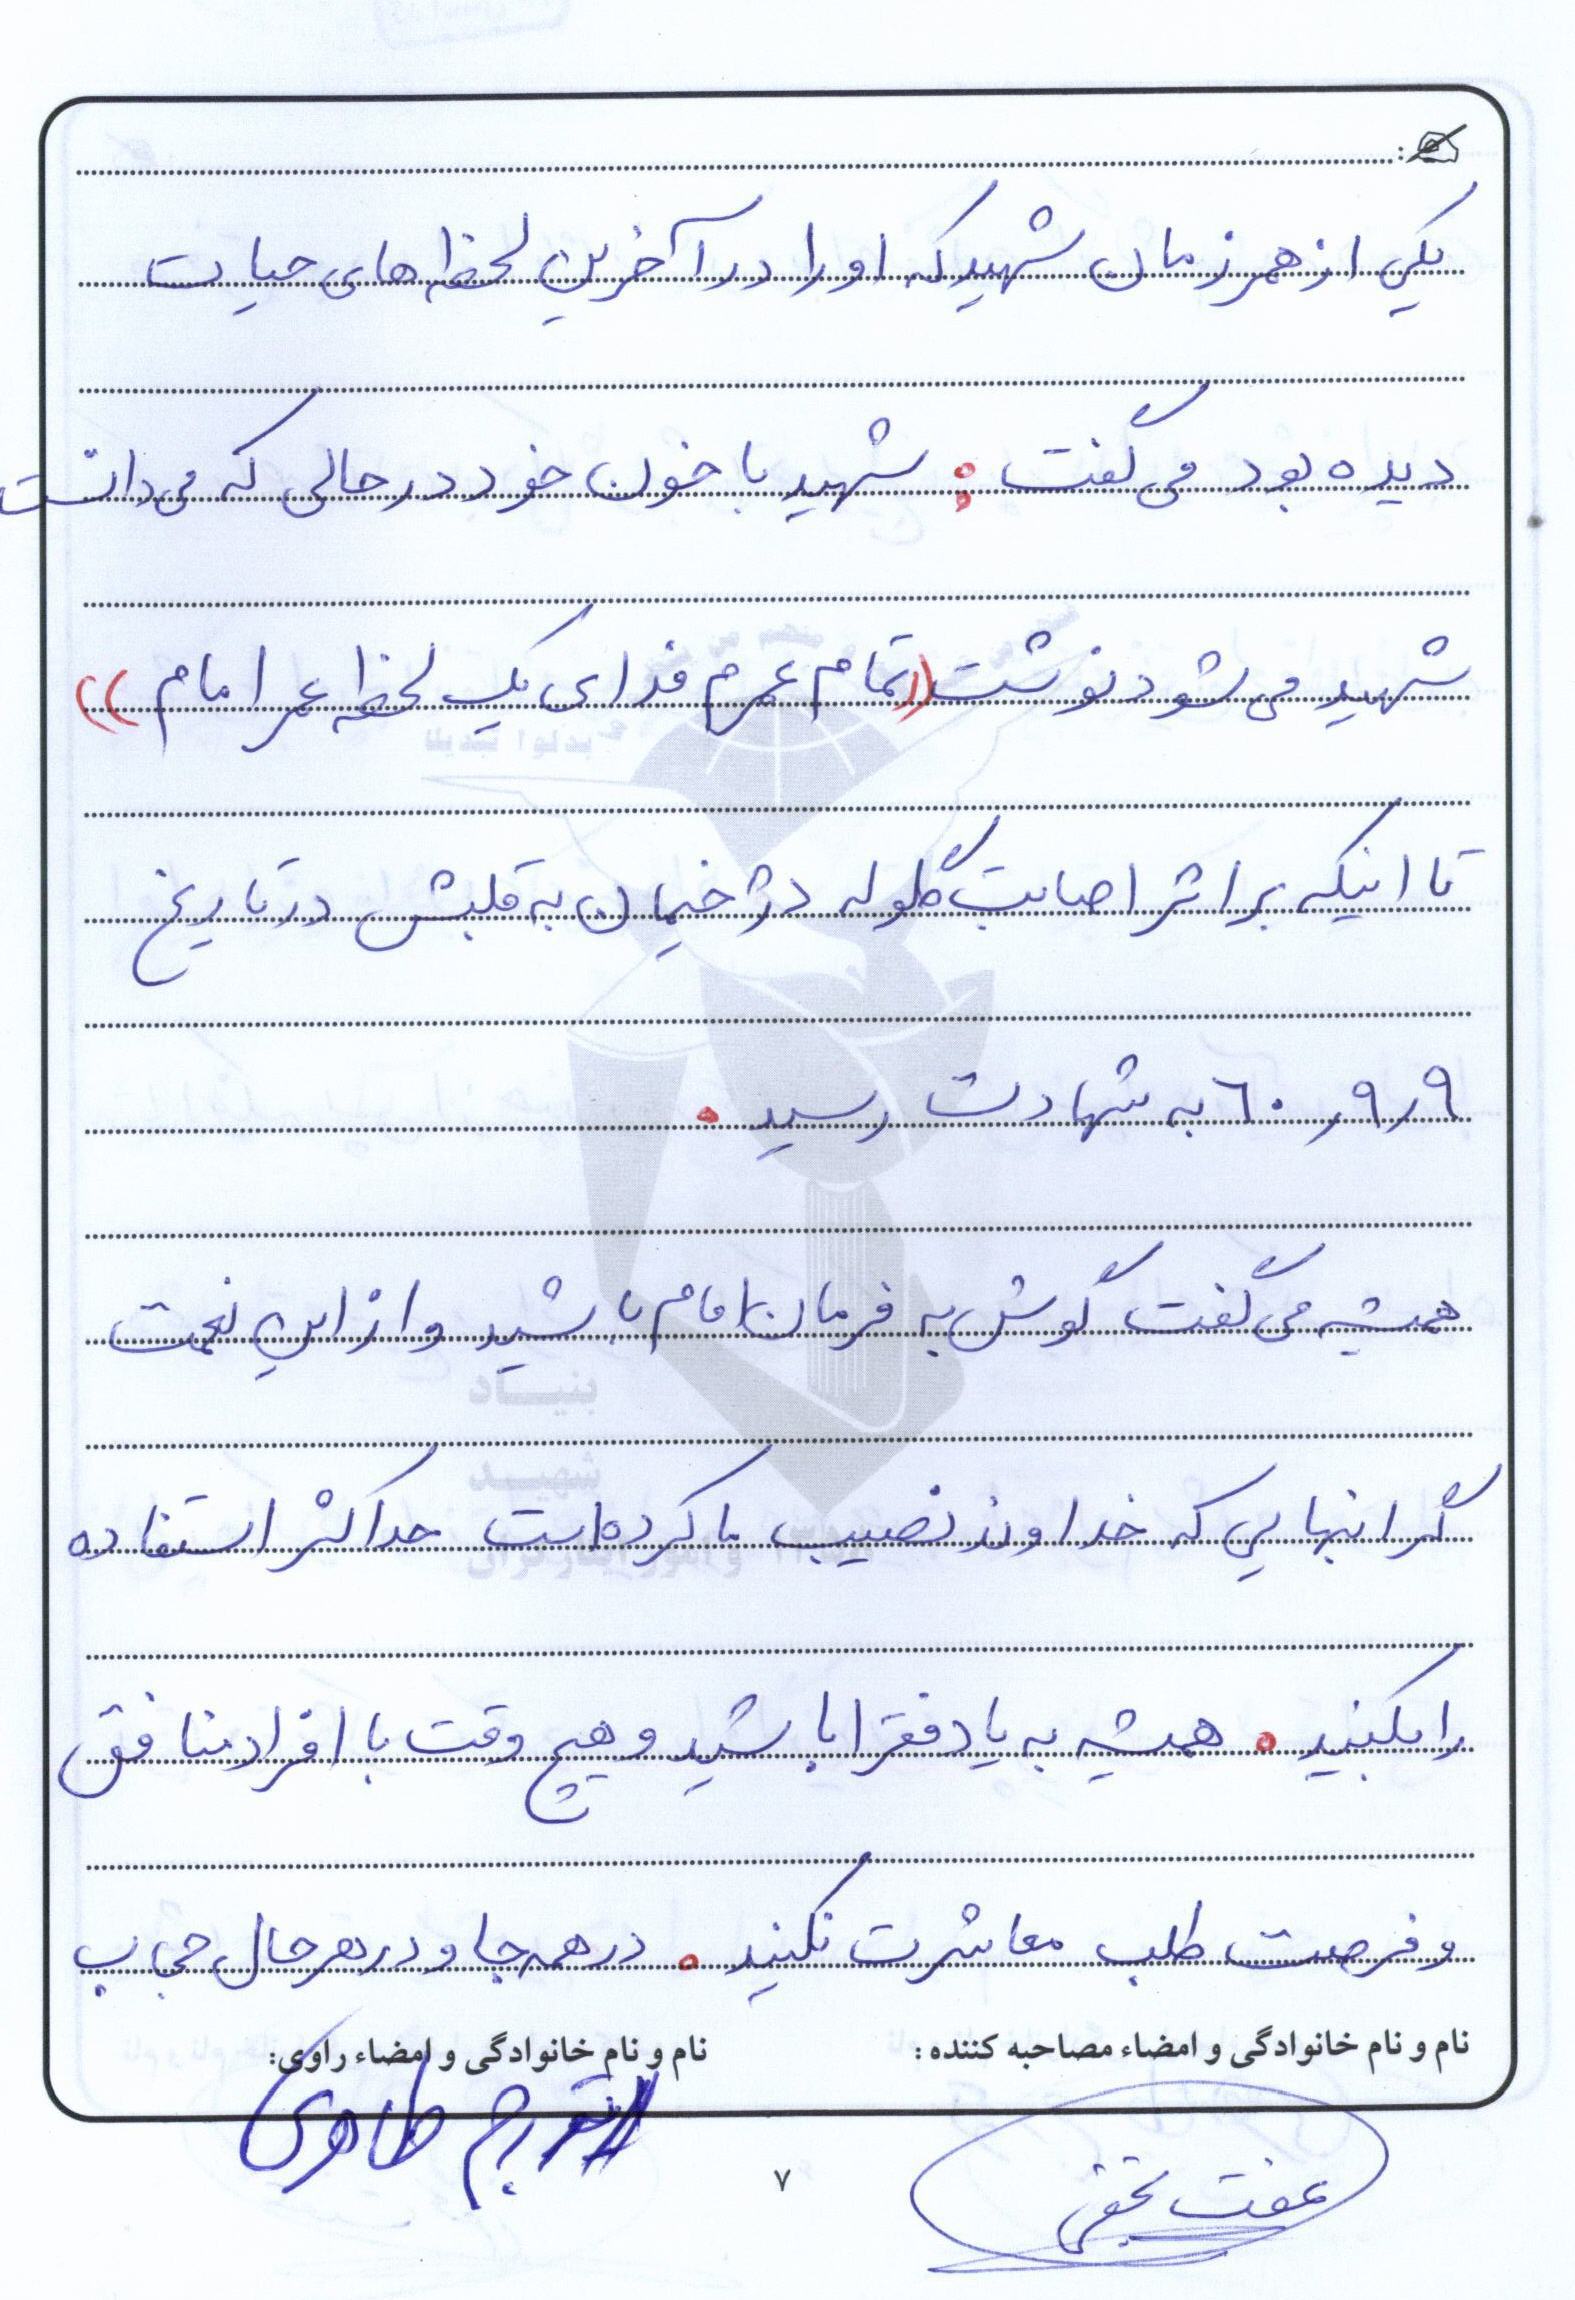 یکی از همرزمان شهید که او را در آخرین لحظه های حیات
دیده بود می گفت : شهید با خون خود در حالی که می دانست
شهید می شود نوشت ((تمام عمرم فدای یک لحظه عمر امام))
تا اینکه بر اثر اصابت گلوله دژخیمان به قلبش در تاریخ
۹ر۹ر۶۰ به شهادت رسید .
همیشه می گفت گوش به فرمان امام باشید و از این نعمت
گرانبهایی که خداوند نصیب ما کرده است حداکثر استفاده
را بکنید . همیشه به یاد فقرا باشید و هیچ وقت با افراد منافق
و فرصت طلب معاشرت نکنید . در همه جا و در هر حال حجاب
نام و نام خانوادگی و امضاء مصاحبه کننده :
نام و نام خانوادگی و امضاء راوی:
طاهری
عفت
۷
بنیاد
شهید
و امور ایثارگران